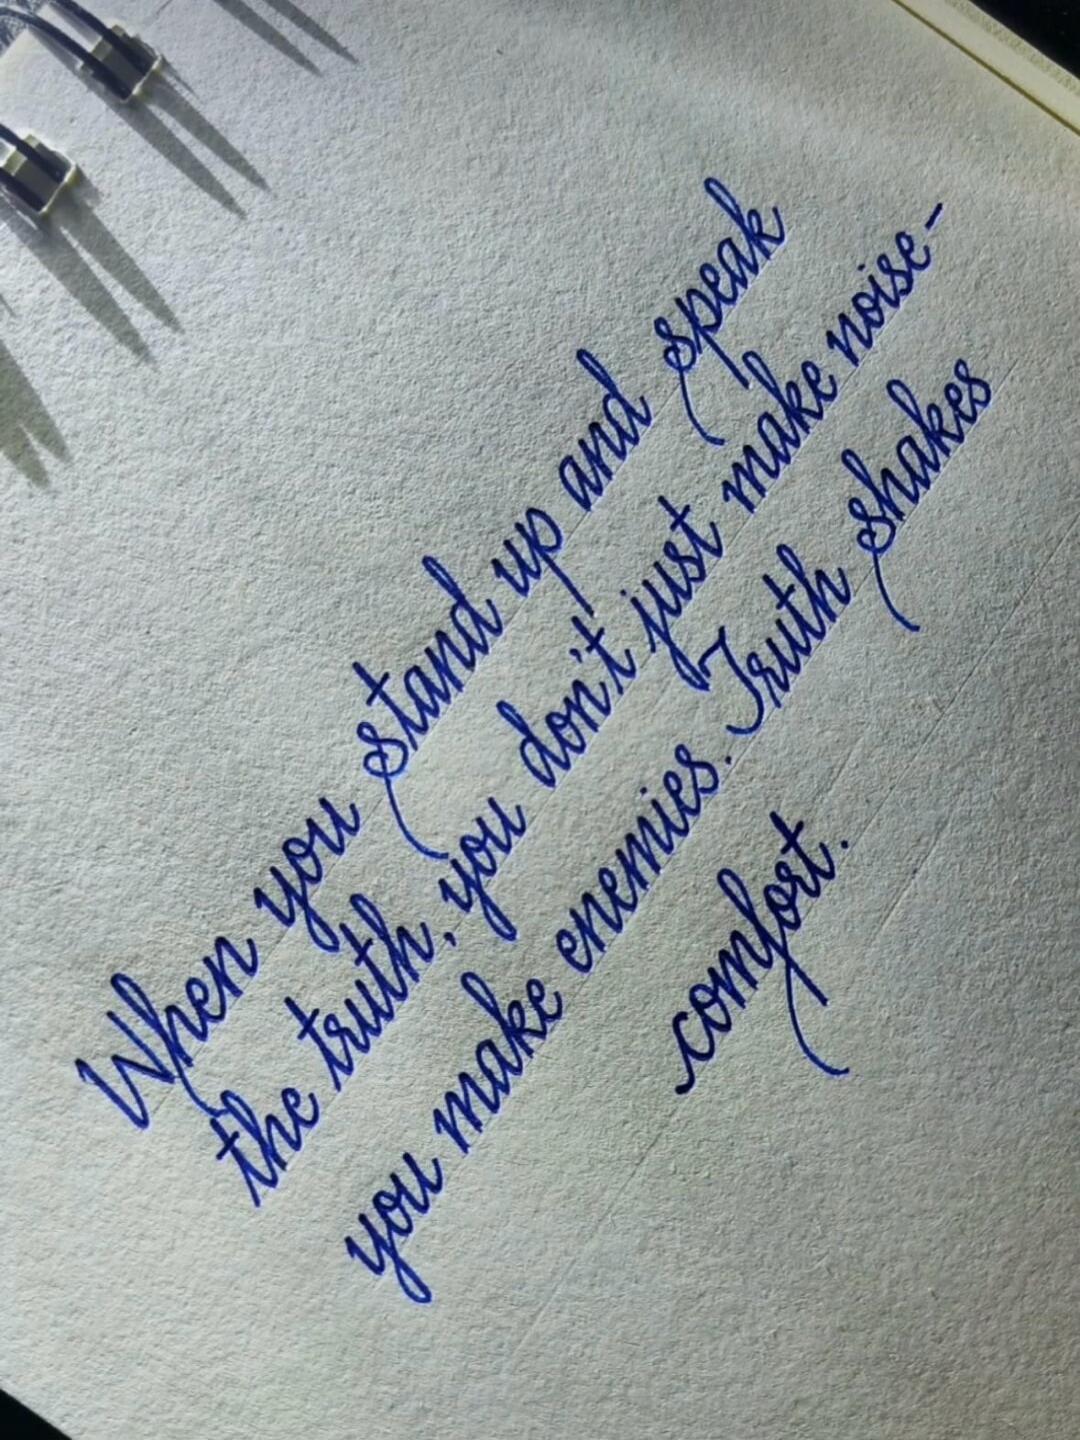 When you stand up and speak
the truth, you don't just make noise-
you make enemies. Truth shakes
comfort.